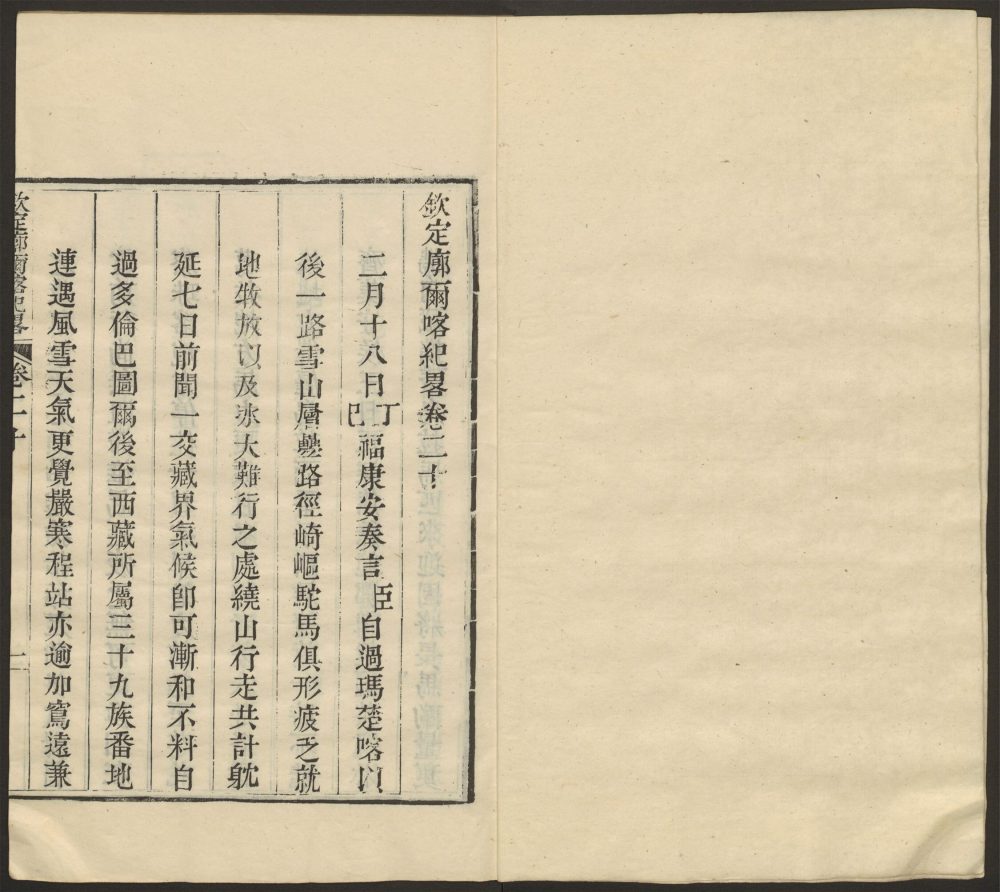 欽定廓爾喀紀畧卷二十
二月十八日丁巳福康安奏言臣自過瑪楚喀以
後一路雪山層疊路徑崎嶇駝馬俱形疲乏就
地牧放以及氷大難行之處繞山行走共計躭
延七日前聞一交藏界氣候卽可漸和不料自
過多倫巴圖爾後至西藏所屬三十九族番地
連遇風雪天氣更覺嚴寒程站亦逾加窵遠兼
欽定廓爾喀紀畧 卷二十 一